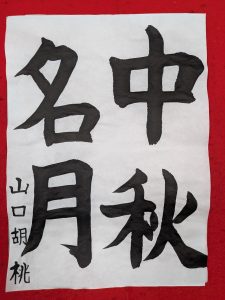 中秋
名月
山口胡桃